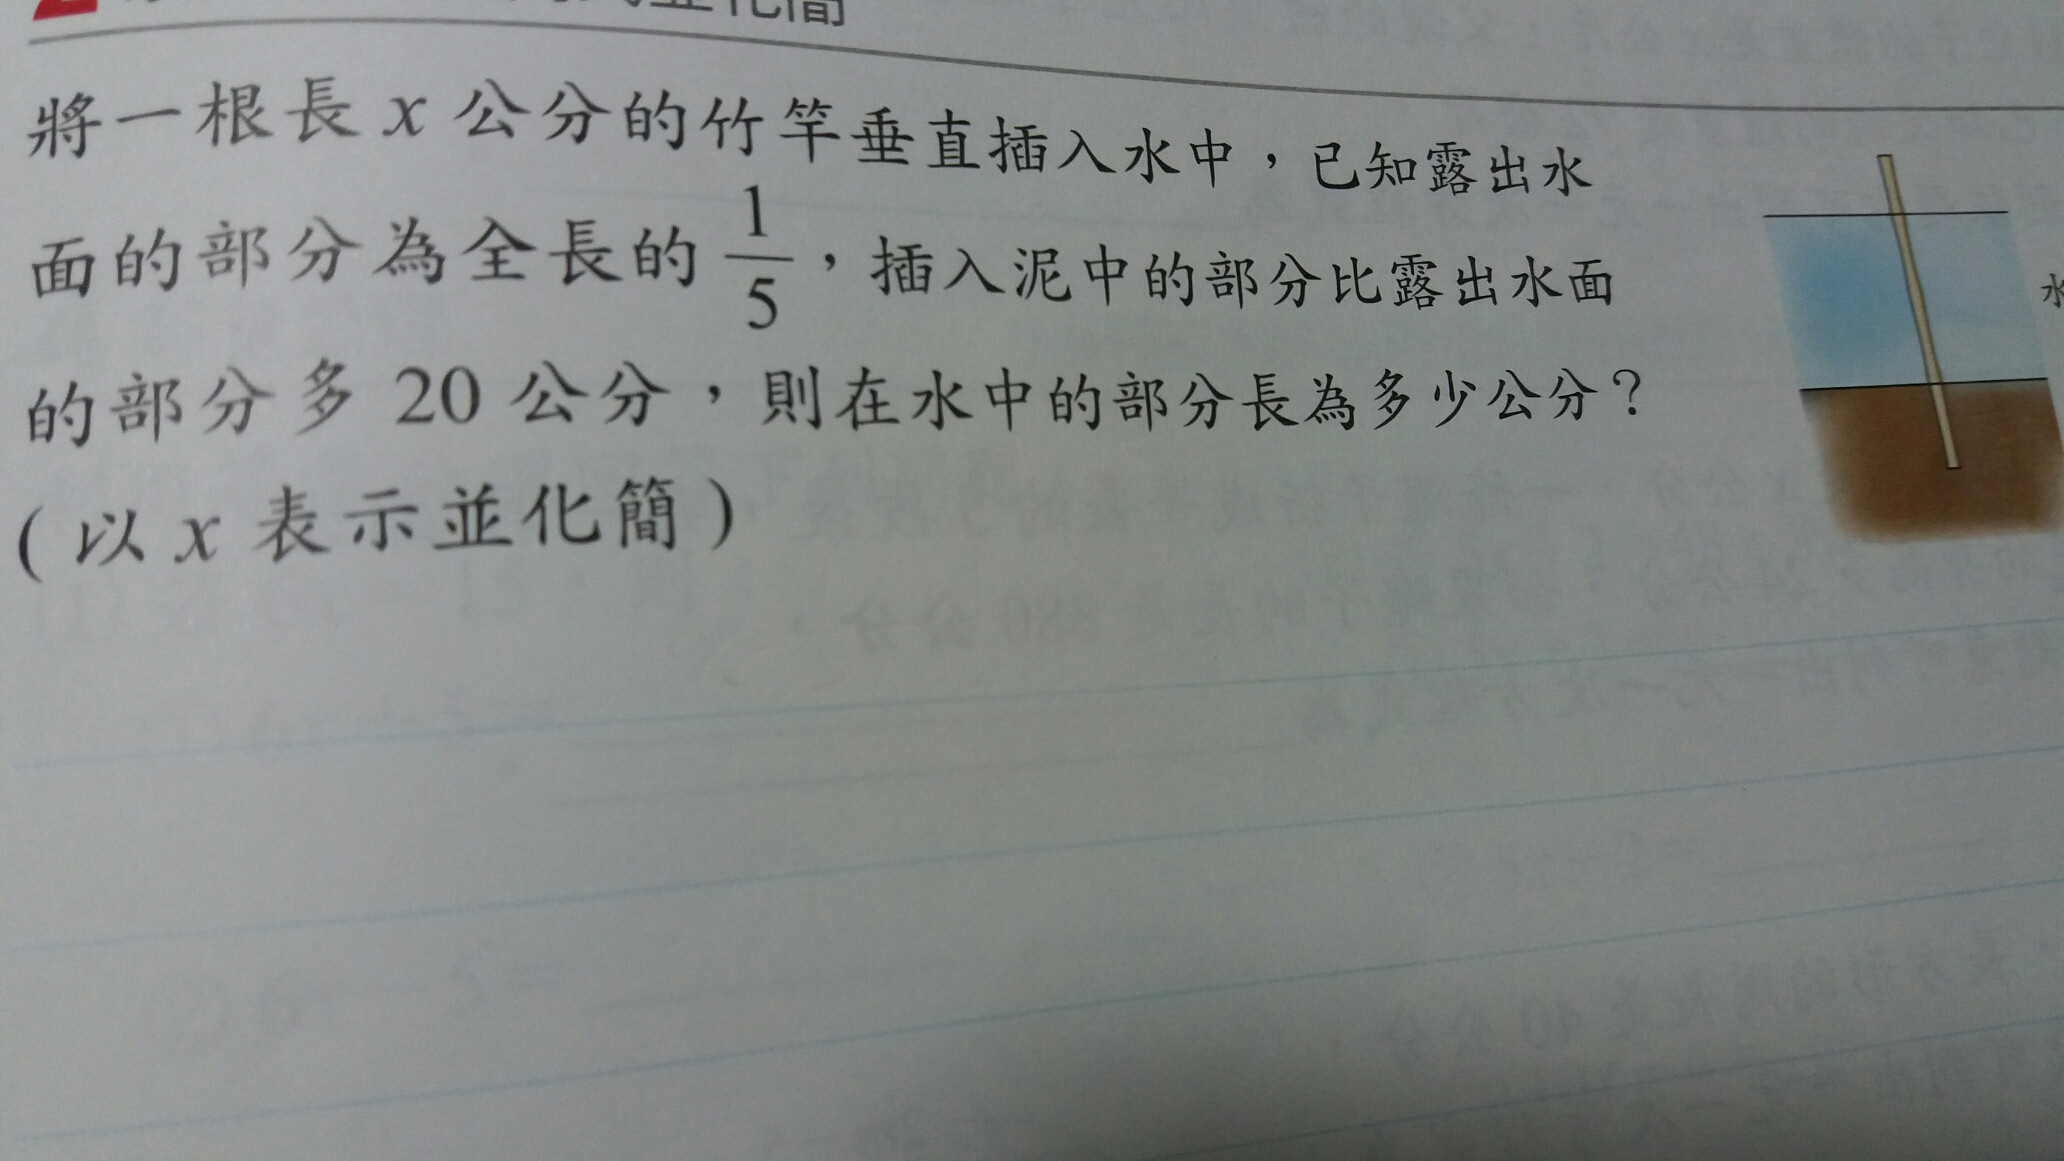 並化簡
將一根長 x 公分的竹竿垂直插入水中，已知露出水
面的部分為全長的 1/5，插入泥中的部分比露出水面
的部分多 20 公分，則在水中的部分長為多少公分？
（以 x 表示並化簡）
水